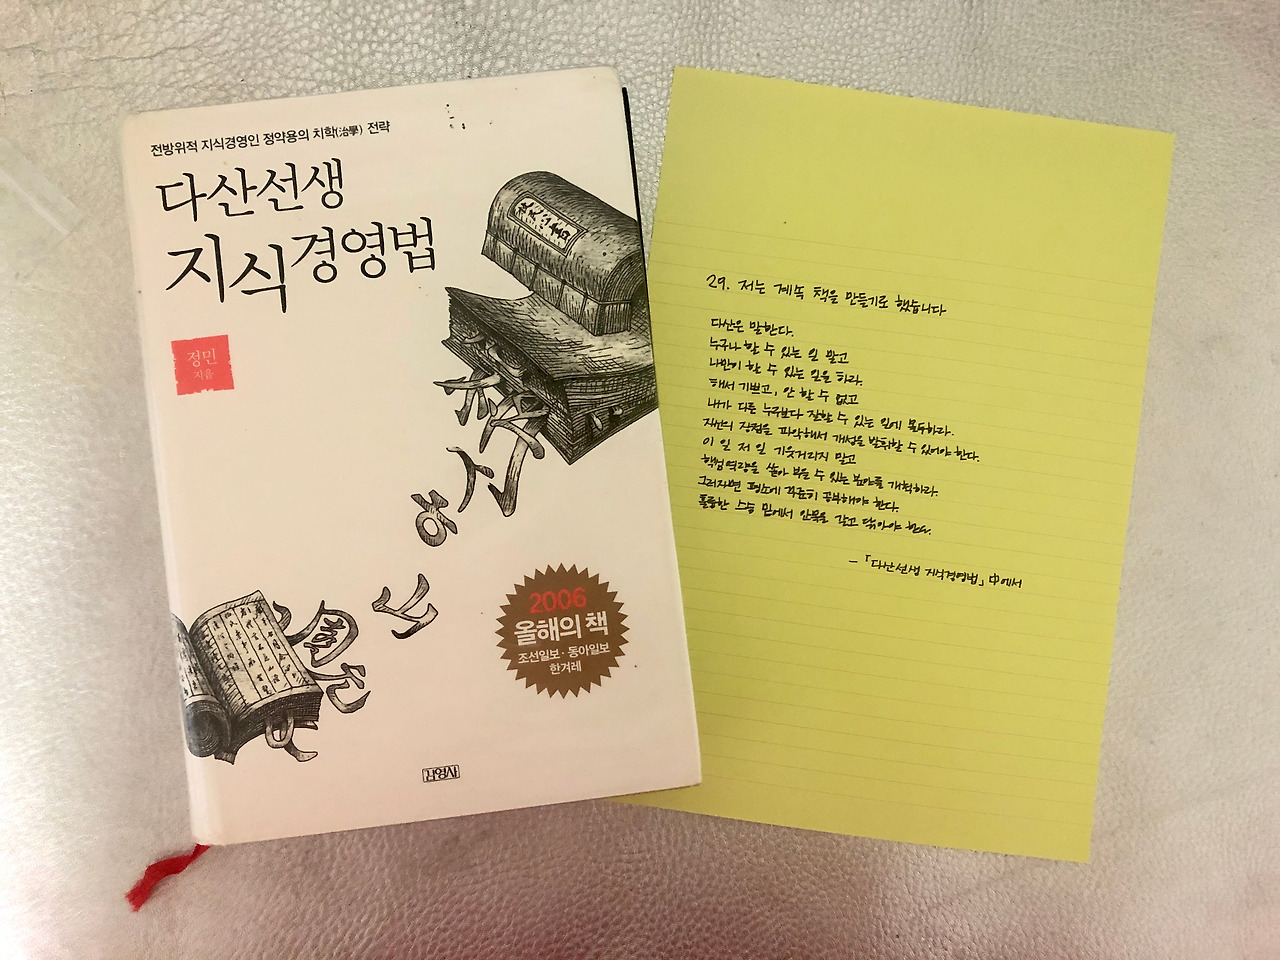 전방위적 지식경영인 정약용의 치학(治學) 전략
다산선생
지식경영법
정민
지음
2006
올해의 책
조선일보 · 동아일보
한겨레
김영사
29. 저는 계속 책을 만들기로 했습니다
다산은 말한다.
누구나 할 수 있는 일 말고
나만이 할 수 있는 일을 하라.
해서 기쁘고, 안 할 수 없고
내가 다른 누구보다 잘할 수 있는 일에 몰두하라.
자신의 장점을 파악해서 개성을 발휘할 수 있어야 한다.
이 일 저 일 기웃거리지 말고
핵심역량을 쏟아 부을 수 있는 분야를 개척하라.
그러자면 평소에 꾸준히 공부해야 한다.
훌륭한 스승 밑에서 안목을 갈고 닦아야 한다.
– 「다산선생 지식경영법」 中에서